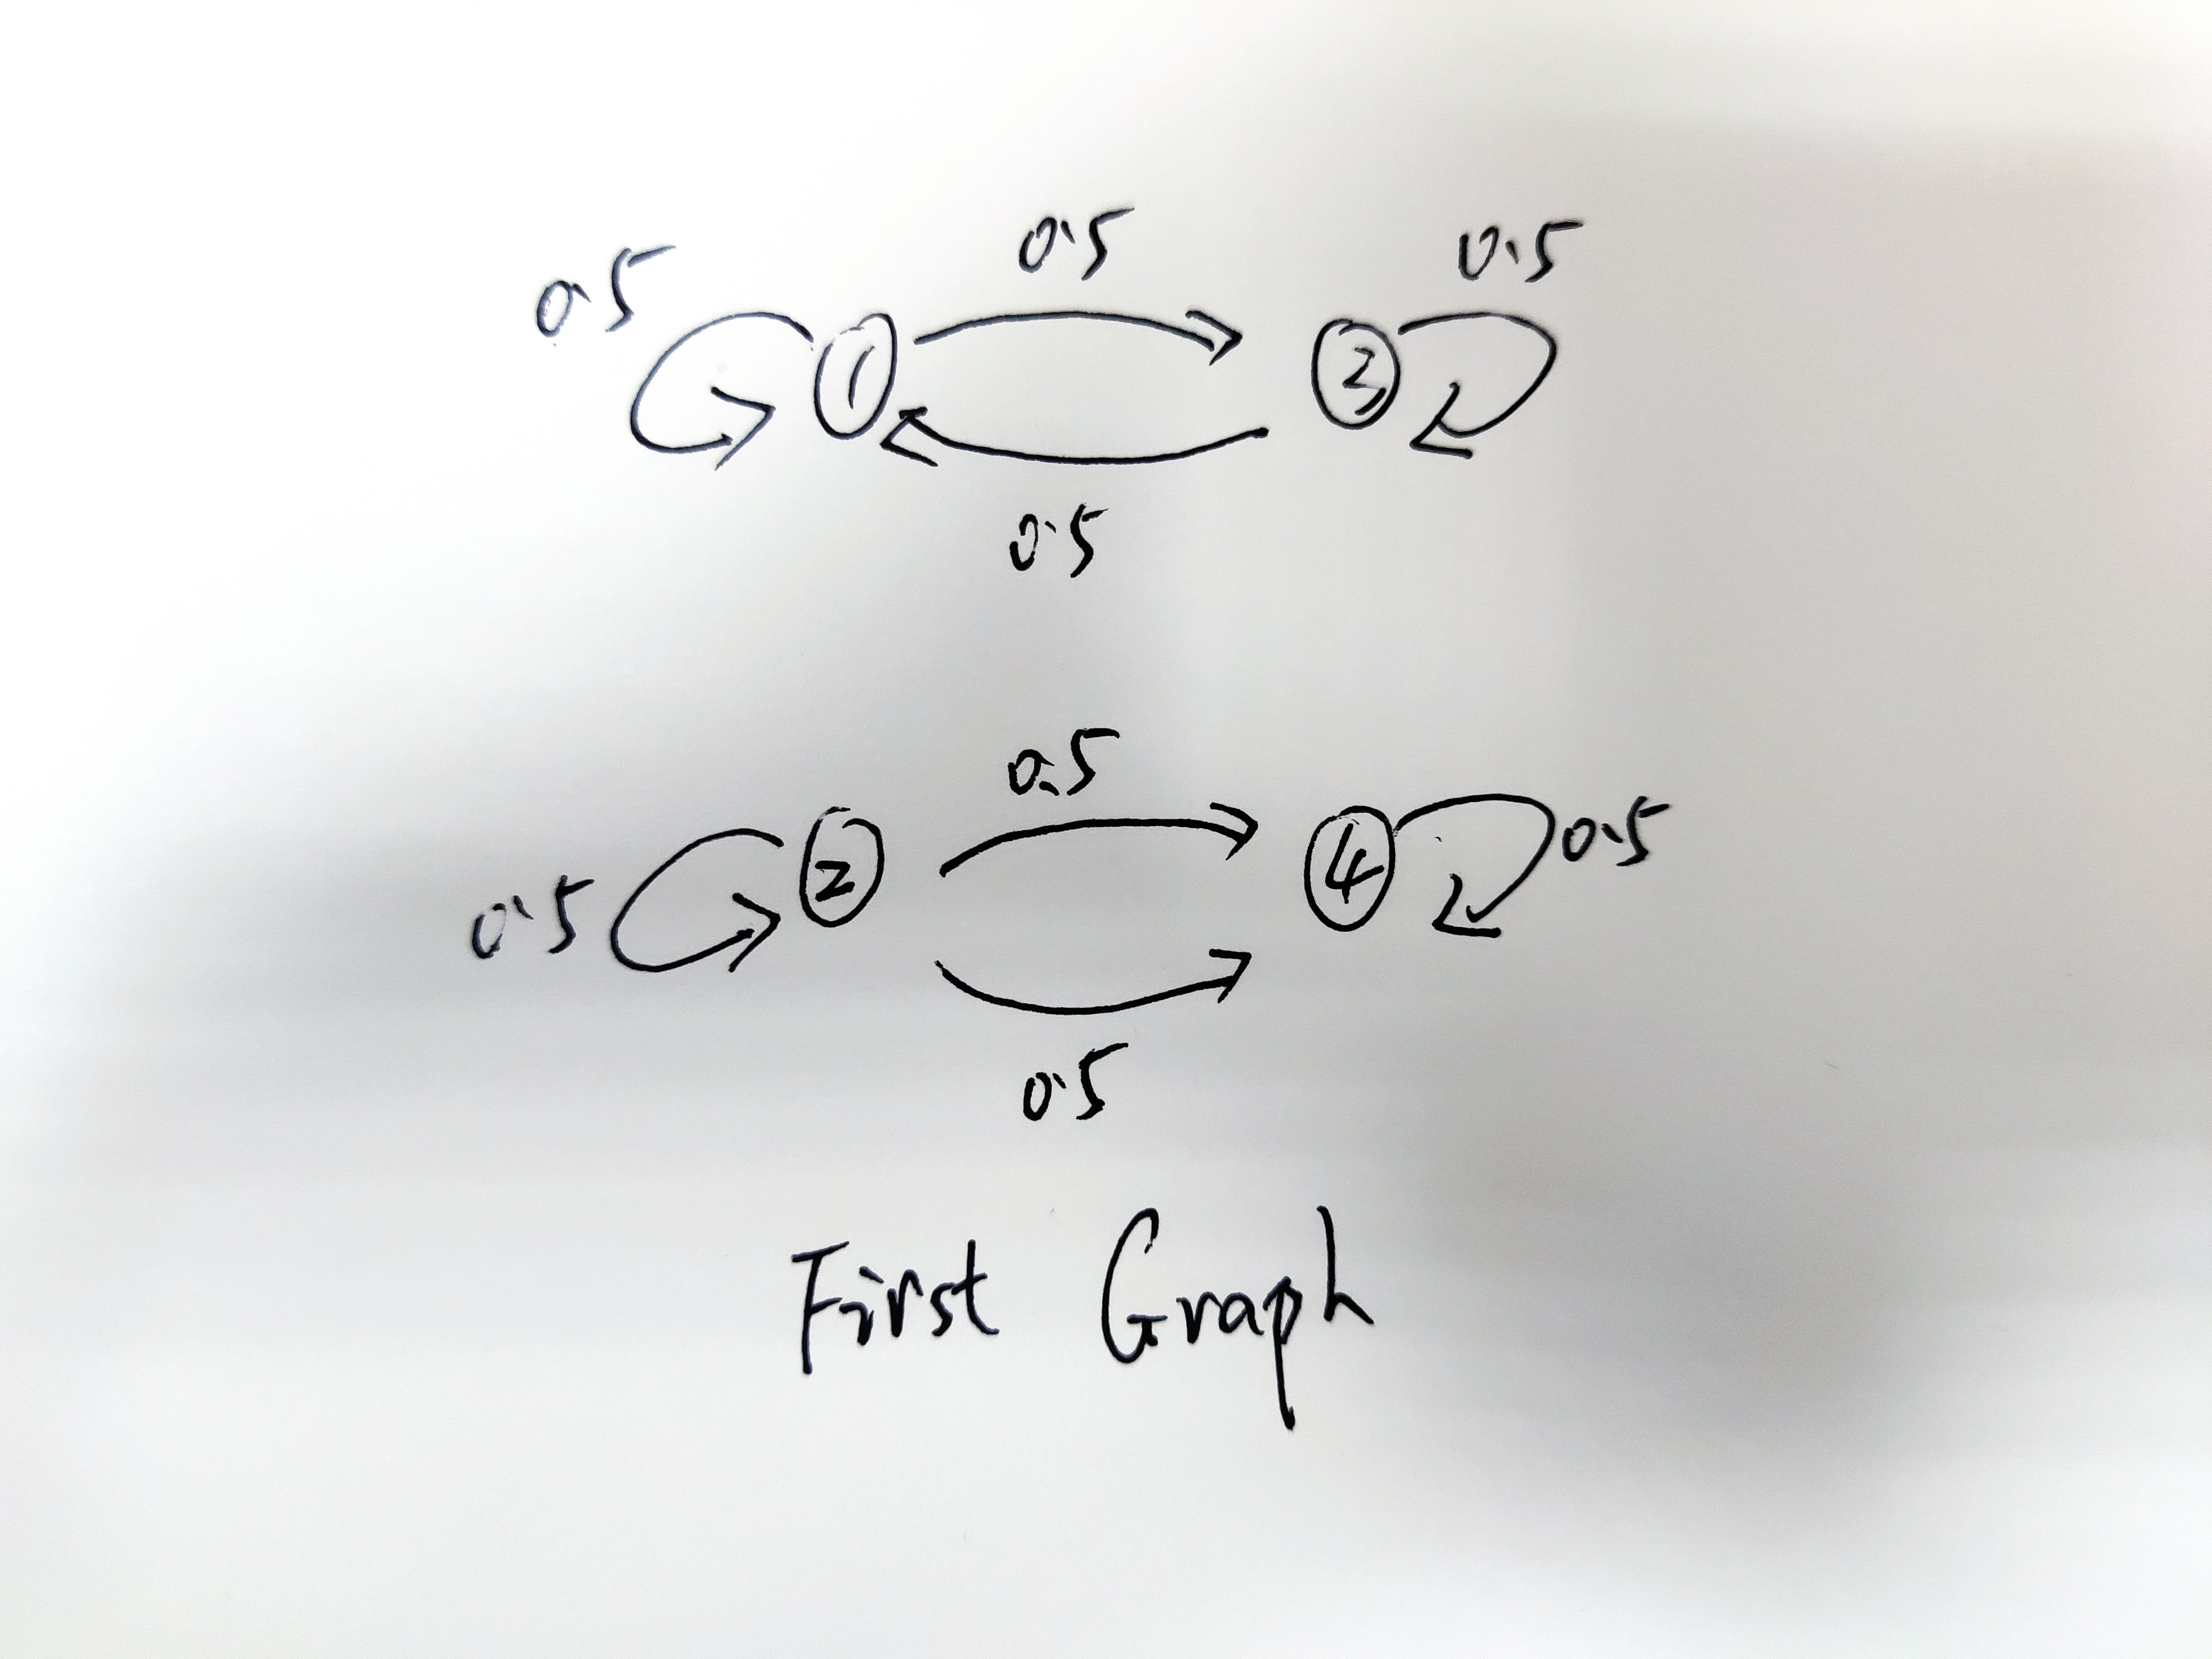 0.5 0.5 0.5
1 3
0.5
0.5
0.5 2 4 0.5
0.5
First Graph